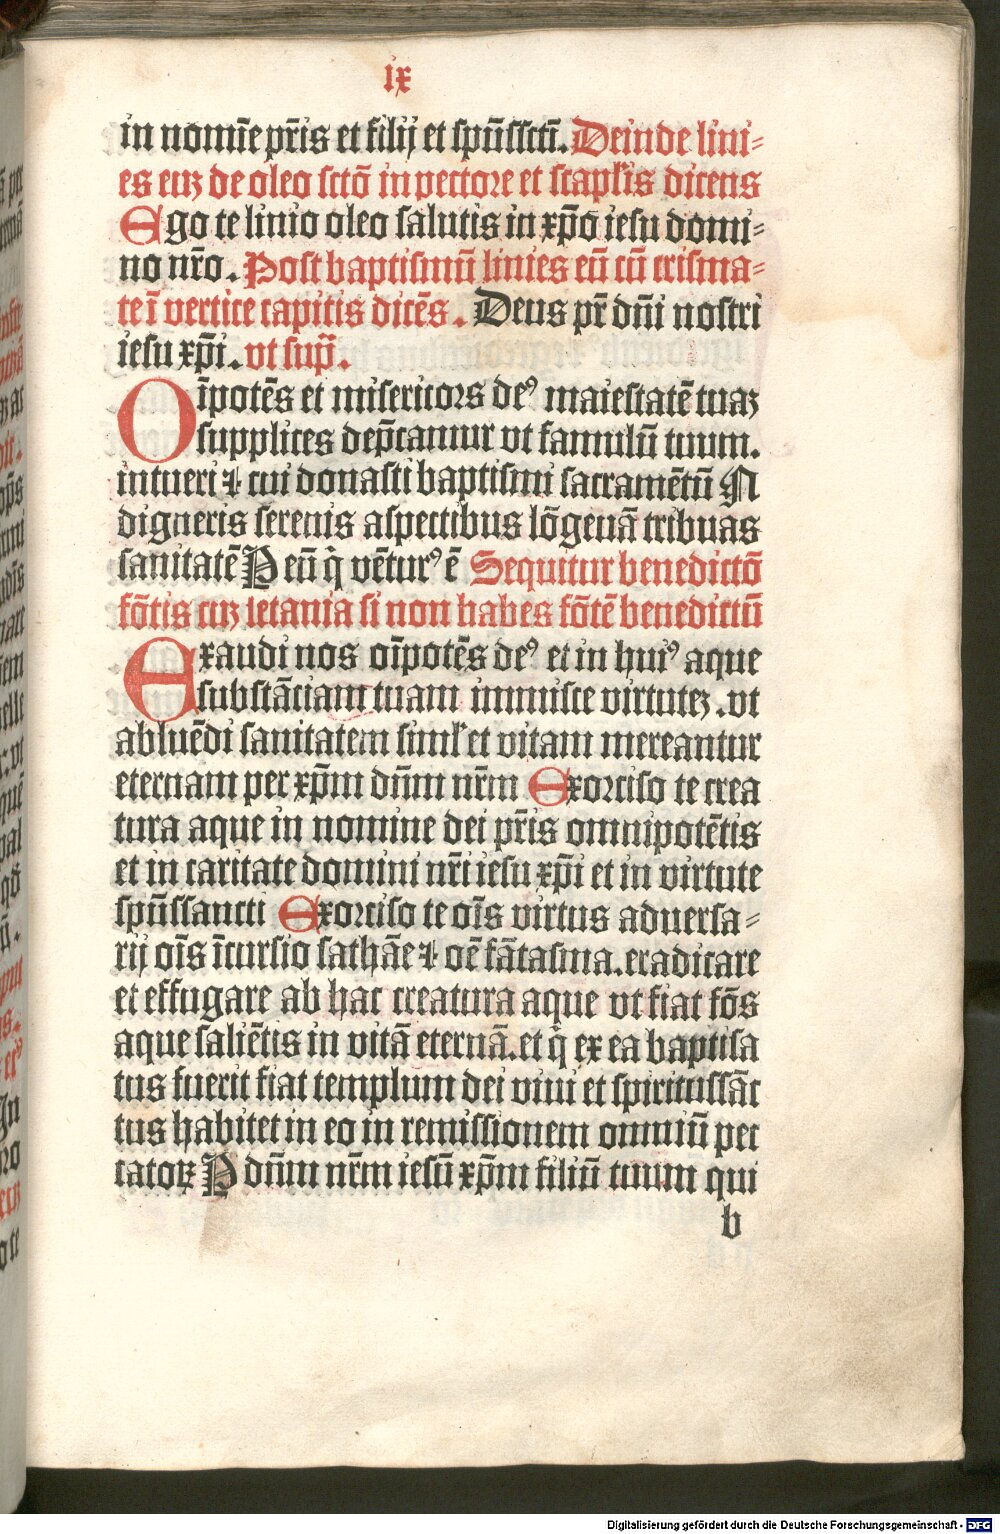 ix
in nomīe pr̄is et filij et spūſſctī. Deinde lini⸗
es euʒ de oleo ſctō in pectore et ſcapl̓is dicens
Ego te linio oleo ſalutis in xp̄o ieſu domi⸗
no nr̄o. Poſt baptiſmū linies eū cū criſma⸗
te ī vertice capitis dicēs. Deus pr̄ dn̄i noſtri
ieſu xp̄i. vt ſup̄.
Oīpotēs et miſericors deꝰ maieſtatē tuaʒ
ſupplices dep̄camur vt famulū tuum.
intueri ⁊ cui donaſti baptiſmi ſacramētū N
digneris ſerenis aſpectibus lōgeuā tribuas
ſanitatē P eū q̄ vēturꝰ ē Sequitur benedictō
fōtis cuʒ letania ſi non habes fōtē benedictū
Exaudi nos oīpotēs deꝰ et in huiꝰ aque
ſubſtāciam tuam immiſce virtuteʒ. vt
abluēdi ſanitatem ſiml̓ et vitam mereantur
eternam per xp̄m dn̄m nr̄m Exorciſo te crea
tura aque in nomine dei pr̄is omnipotētis
et in caritate domini nr̄i ieſu xp̄i et in virtute
ſpūſſancti Exorciſo te oīs virtus aduerſa⸗
rij oīs īcurſio ſathāe ⁊ oē fātaſma. eradicare
et effugare ab hac creatura aque vt fiat fōs
aque ſaliētis in vitā eternā. et q̄ ex ea baptiſa
tus fuerit fiat templum dei viui et ſpirituſſāc
tus habitet in eo in remiſſionem omniū pec
catoꝝ P dn̄m nr̄m ieſū xp̄m filiū tuum qui
b
Digitalisierung gefördert durch die Deutsche Forschungsgemeinschaft - DFG